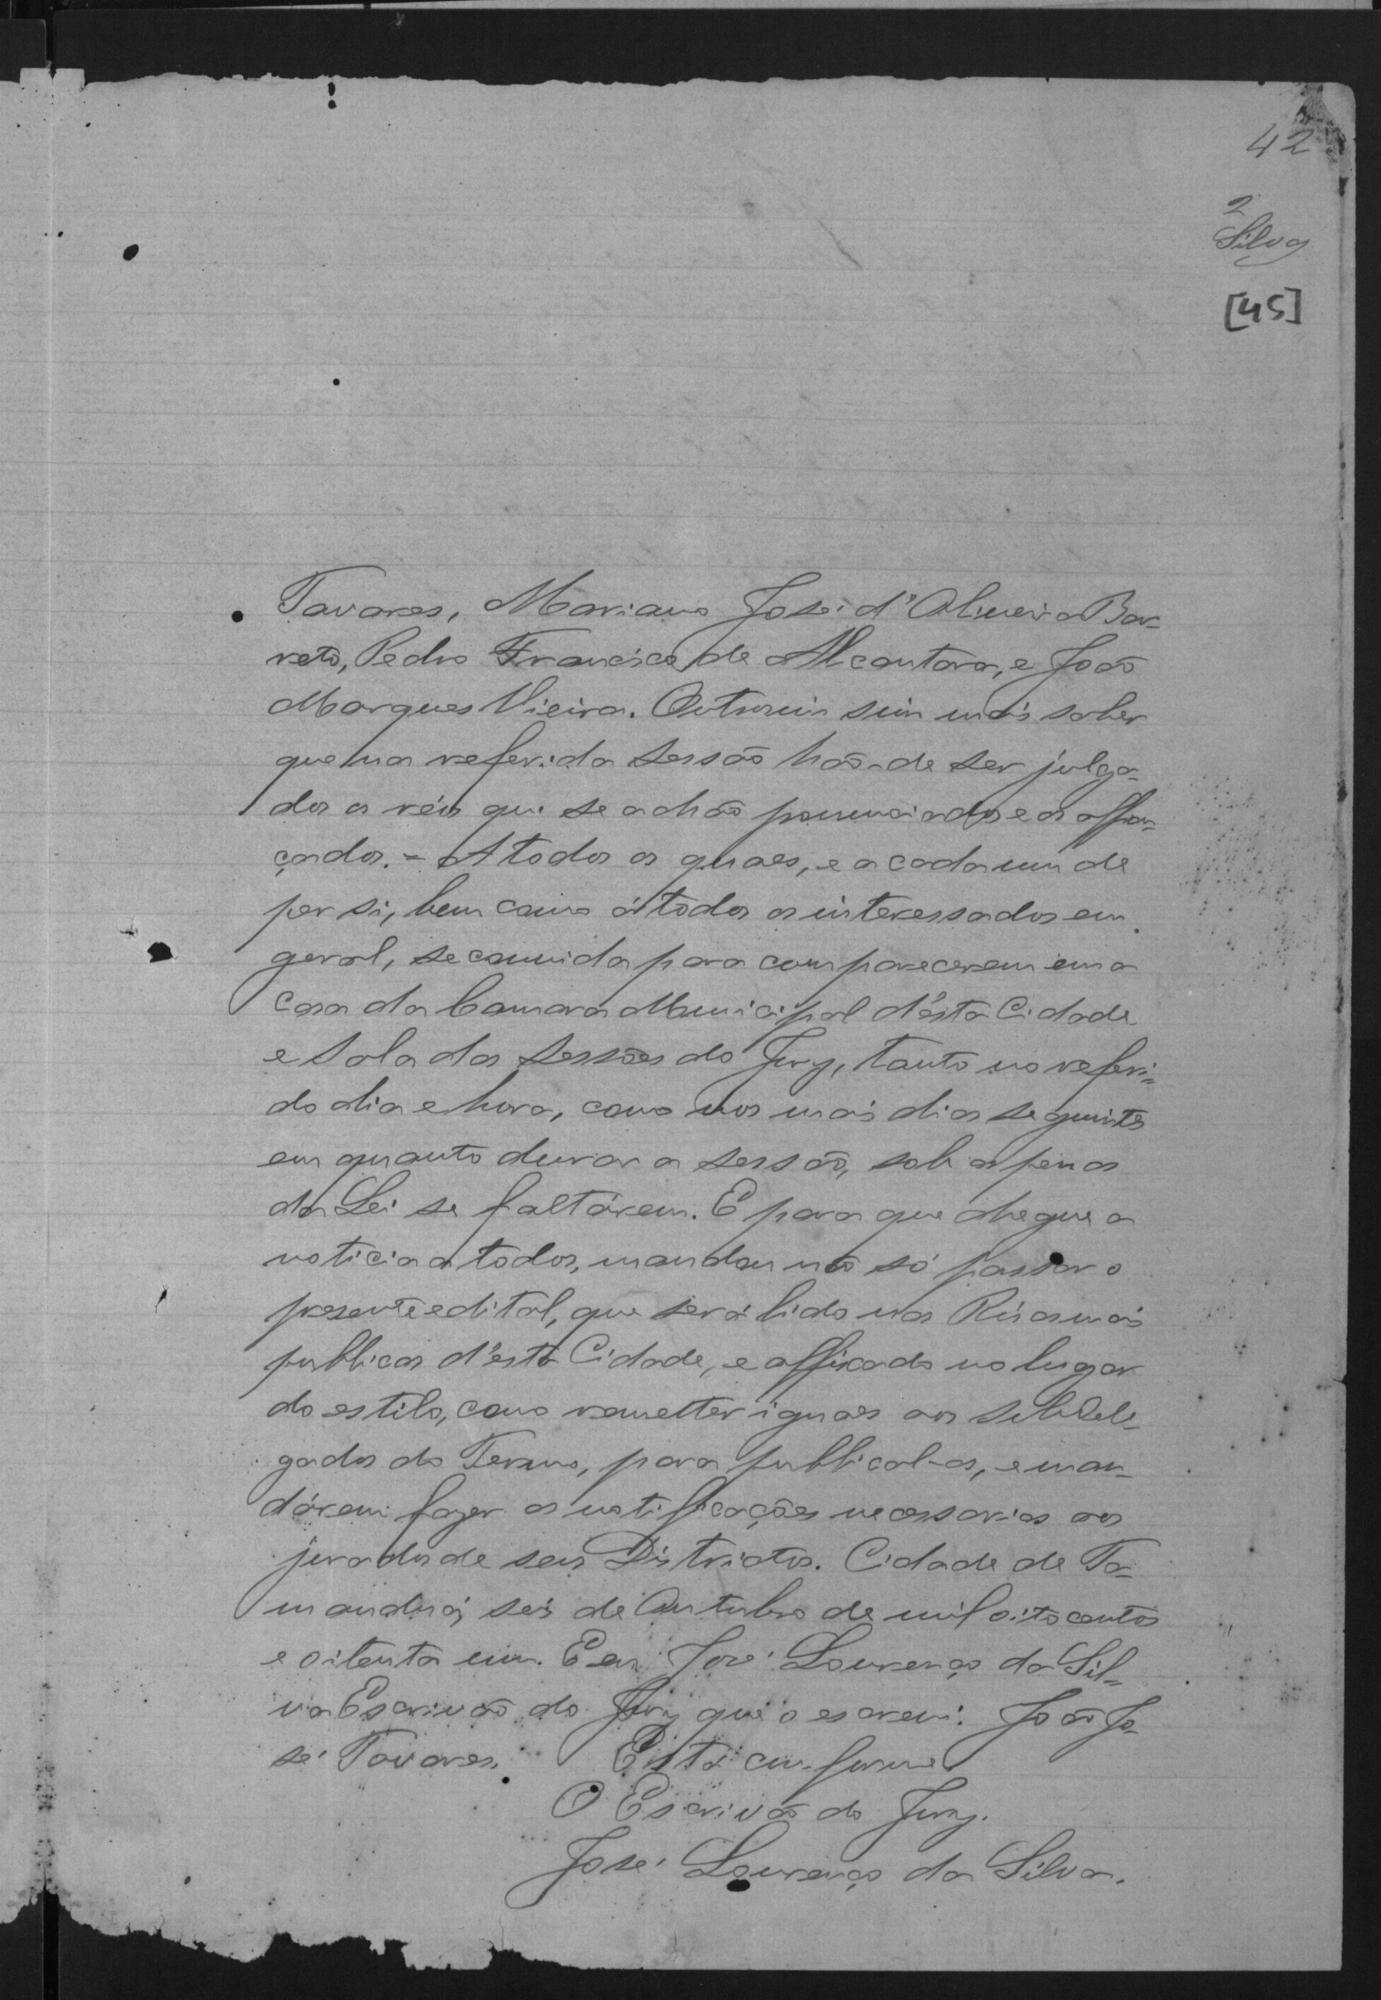 42
2
Silva
[45]
Tavares, Mariano José d'Oliveira Bar-
reto, Pedro Francisco de Alcantara, e João
Marques Vieira. Outrosim sim mais saber
que na referida sessão hão-de ser julga-
dos os réis que se achão pronunciados e os affian-
çados. - A todos os quaes, e a cada um de
per si, bem como á todos os interessados em
geral, se convida para comparecerem em a
Casa da Camara Municipal d'ésta Cidade
e Sala das Sessões do Jury, tanto no referi-
do dia e hora, como nos mais dias seguintes
em quanto durar a sessão, sob as penas
da Lei se faltárem. E para que chegue a
noticia a todos, mandou não só passar o
presente edital, que será lido nas Rúas mais
publicas d'ésta Cidade, e affixado no lugar
do estilo, como remetter iguaes aos subdele-
gados do Termo, para publical-os, e man-
dárem fazer as notificações necessarias aos
jurados de seus Districtos. Cidade de Ta-
manduá, seis de Outubro de mil oito centos
e oitenta um. E eu José Lourenço da Sil-
va Escrivão do Jury que o escrevi. João Jo-
sé Tavares. Está conforme
O Escrivão do Jury.
José Lourenço da Silva.